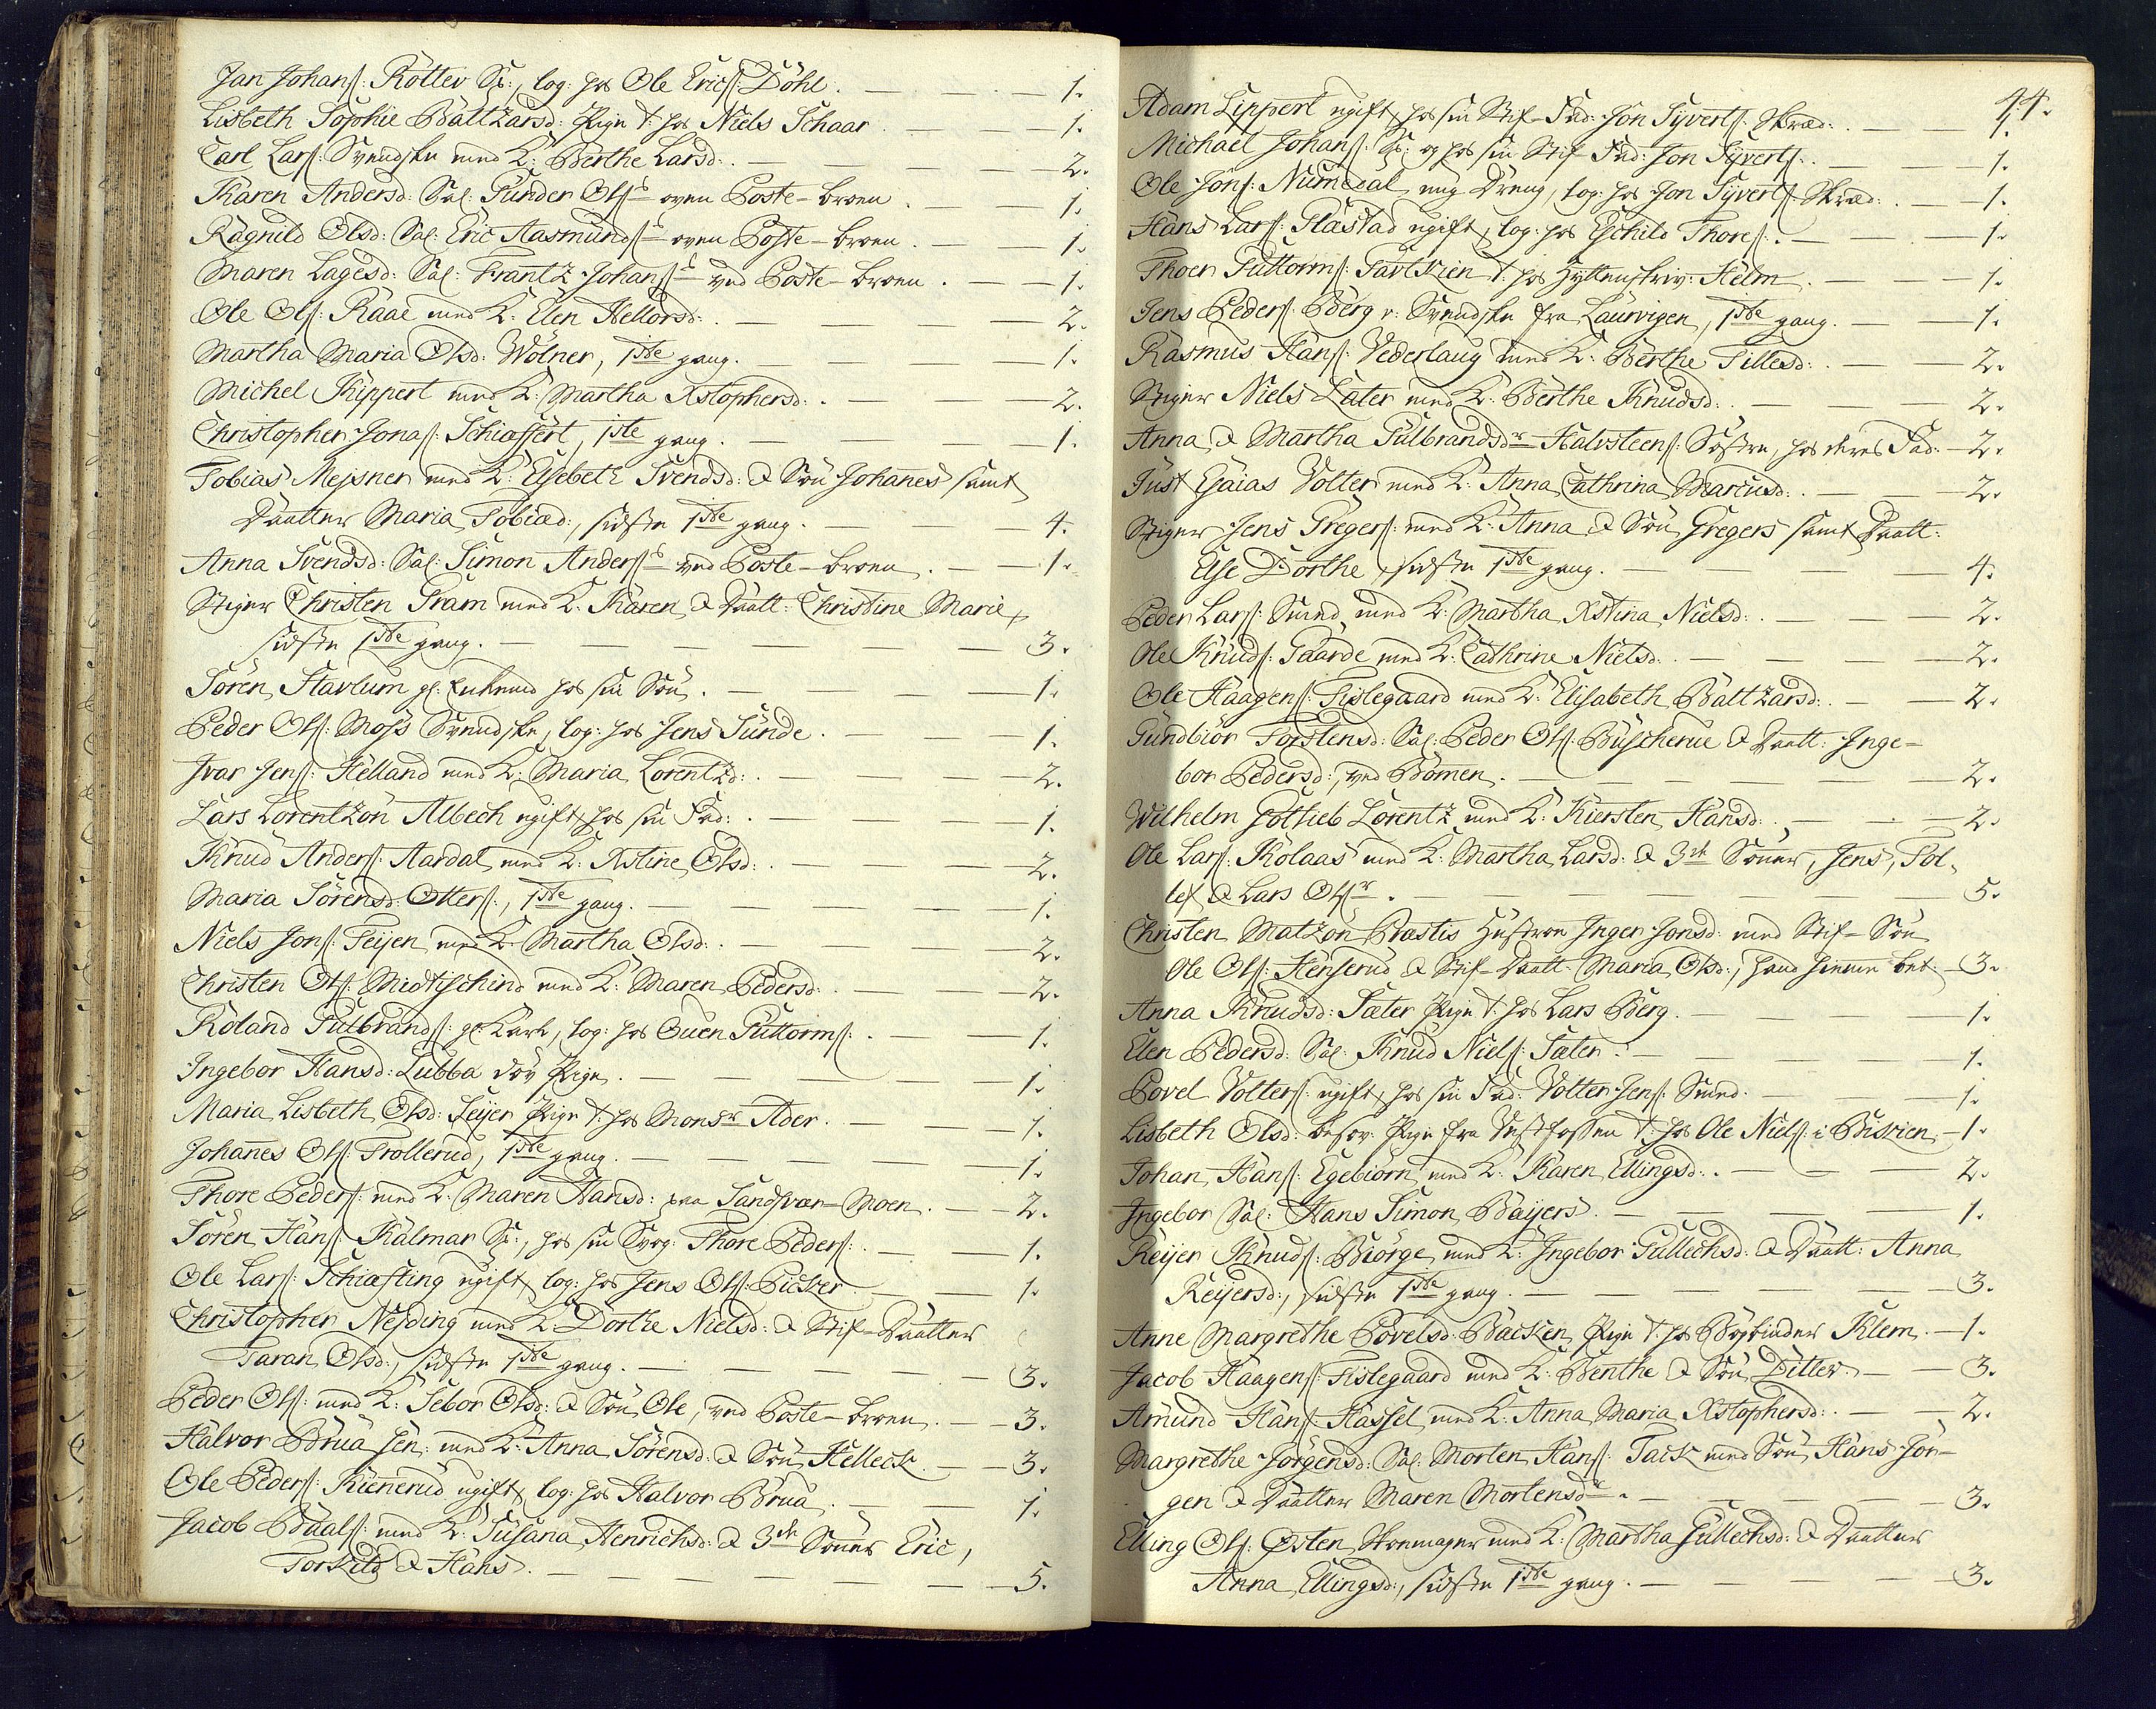 Jan Johanſ: Rötter Sv:, log: hos Ole Ericſ: Döhl. — 1.
Lisbeth Sophie Baltzarsd: Pige t: hos Niels Schaar. — 1.
Carl Larſ: Svendske med K: Berthe Larsd:. — 2.
Karen Andersd: Sal: Gunder Olſ.s oven Poste-broen. — 1.
Ragnild Olsd: Sal: Eric Aasmundſ.s oven Poste-broen. — 1.
Maren Lagesd: Sal: Frantz Johanſ.s ved Poste-broen. — 1.
Ole Olſ: Raae med K: Elen Hellorsd:. — 2.
Martha Maria Olsd: Wölner, 1ste gang. — 1.
Michel Kippert med K: Martha Xstophersd:. — 2.
Christopher Jonaſ: Schiæffert, 1ste gang. — 1.
Tobias Mejsner med K: Elsebeth Svendsd: & Søn Johanes samt
Daatter Maria Tobiæd:, sidste 1ste gang. — 4.
Anna Svendsd: Sal: Simon Anderſ.s ved Poste-broen. — 1.
Stiger Christen Fram med K: Karen & Daatt: Christine Marie,
sidste 1ste gang. — 3.
Sören Stavlum gl: Enkemd hos sin Søn. — 1.
Peder Olſ: Moss Svendske, log: hos Jens Sunde. — 1.
Ivar Jenſ: Helland med K: Maria Lorentzd:. — 2.
Lars Lorentzön Albech ugift, hos sin Fad:. — 1.
Knud Anderſ: Aardal med K: Xstine Olsd:. — 2.
Maria Sörensd: Otterſ:, 1ste gang. — 1.
Niels Jonſ: Feijen med K: Martha Olsd:. — 2.
Christen Olſ: Midtischind med K: Maren Pedersd:. — 2.
Roland Gulbrandſ: gl: Karl, log: hos Ouen Guttormſ:. — 1.
Ingebor Hansd: Lubba döv Pige. — 1.
Maria Lisbeth Olsd: Leijer Pige t: hos Monsr Ader. — 1.
Johanes Olſ: Trollerud, 1ste gang. — 1.
Thore Pederſ: med K: Maren Hansd: paa Sandsvær-Moen. — 2.
Sören Hanſ: Kalmar Sv:, hos sin Svog: Thore Pederſ:. — 1.
Ole Larſ: Schiæfting ugift, log: hos Jens Olſ: Pucker. — 1.
Christopher Neſding med K: Dorthe Nielsd: & Stif-Daatter
Taran Olsd:, sidste 1ste gang. — 3.
Peder Olſ: med K: Sebor Olsd: & Søn Ole, ved Poste-broen. — 3.
Halvor Brua sen: med K: Anna Sörensd: & Søn Helleck. — 3.
Ole Pederſ: Kiennerud ugift, log: hos Halvor Brua. — 1.
Jacob Baalſ: med K: Susana Henrichsd: & 3de Sönner Eric,
Torkild & Hans. — 5.
44.
Adam Lippert ugift, hos sin Stif-Fad: Jon Syvertſ: Skræd:. — 1.
Michael Johanſ: Sv: og hos sin Stif-Fad: Jon Syvertſ:. — 1.
Ole Jonſ: Numedal ung Dreng, log: hos Jon Syvertſ: Skræd:. — 1.
Hans Larſ: Flastad ugift, log: hos Eschild Thoreſ:. — 1.
Thoer Guttormſ: Garlsien t: hos Hyttenskriv: Helm. — 1.
Jens Pederſ: Berg v: Svendske fra Laurvigen, 1ste gang. — 1.
Rasmus Hanſ: Vederlaug med K: Berthe Tillesd:. — 2.
Stiger Niels Later med K: Berthe Knudsd:. — 2.
Anna & Martha Gulbrandsdr Halvsteenſ: Søstre, hos deres Fad: — 2.
Just Esaias Volter med K: Anna Cathrina Marcusd:. — 2.
Stiger Jens Gregerſ: med K: Anna & Søn Gregers samt Daatt:
Else Dorthe, sidste 1ste gang. — 4.
Peder Larſ: Smed med K: Martha Xstina Nielsd:. — 2.
Ole Knudſ: Gaarde med K: Cathrine Nielsd:. — 2.
Ole Haagenſ: Fislegaard med K: Elisabeth Baltzarsd:. — 2.
Gundbiör Torstensd: Sal: Peder Olſ: Buscherue & Daatt: Inge-
bor Pedersd:, ved Bommen. — 2.
Wilhelm Gotlieb Lorentz med K: Kiersten Hansd:. — 2.
Ole Larſ: Kolaas med K: Martha Larsd: & 3de Sönner, Jens, Tol-
lef & Lars Olſr. — 5.
Christen Matzön Prastis Hustroe Inger Jonsd: med Stif-Søn
Ole Olſ: Henserud & Stif-Daatt: Maria Olsd:, hand hiemme bet: — 3.
Anna Knudsd: Sæter Pige t: hos Lars Berg. — 1.
Elen Pedersd: Sal: Knud Nielſ: Sæter. — 1.
Povel Volterſ: ugift, hos sin Fad: Volter Jenſ: Smed. — 1.
Lisbeth Olsd: besov: Pige fra Vestfossen t: hos Ole Nielſ: i Biskien — 1.
Johan Hanſ: Egebiörn med K: Karen Ellingsd:. — 2.
Ingebor Sal: Hans Simon Baijers. — 1.
Reijer Knudſ: Biörge med K: Ingebor Gullechsd: & Daatt: Anna
Reijersd:, sidste 1ste gang. — 3.
Anne Margrethe Povelsd: Backen Pige t: hos Bogbinder Klem. — 1.
Jacob Haagenſ: Fislegaard med K: Benthe & Søn Ditlev. — 3.
Amund Hanſ: Hassel med K: Anna Maria Xstophersd:. — 2.
Margrethe Jörgensd: Sal: Morten Hanſ: Tack med Søn Hans Jör-
gen & Daatter Maren Mortensdr. — 3.
Elling Olſ: Østen Skoemager med K: Martha Gullechsd: & Daatter
Anna Ellingsd:, sidste 1ste gang. — 3.